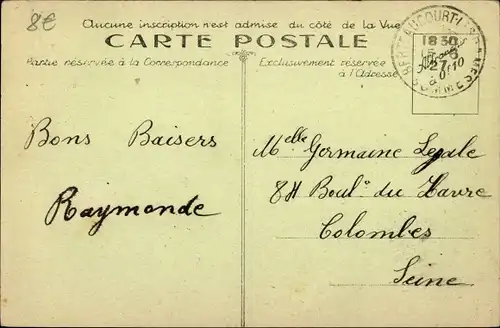 8€
Aucune inscription n'est admise du côté de la Vue
CARTE POSTALE
Partie réservée à la Correspondance
Exclusivement réservée
à l'Adresse
18 30
27
SOMME
Bons Baisers
Raymonde
Melle Germaine Legale
84 Boul. du Havre
Colombes
Seine